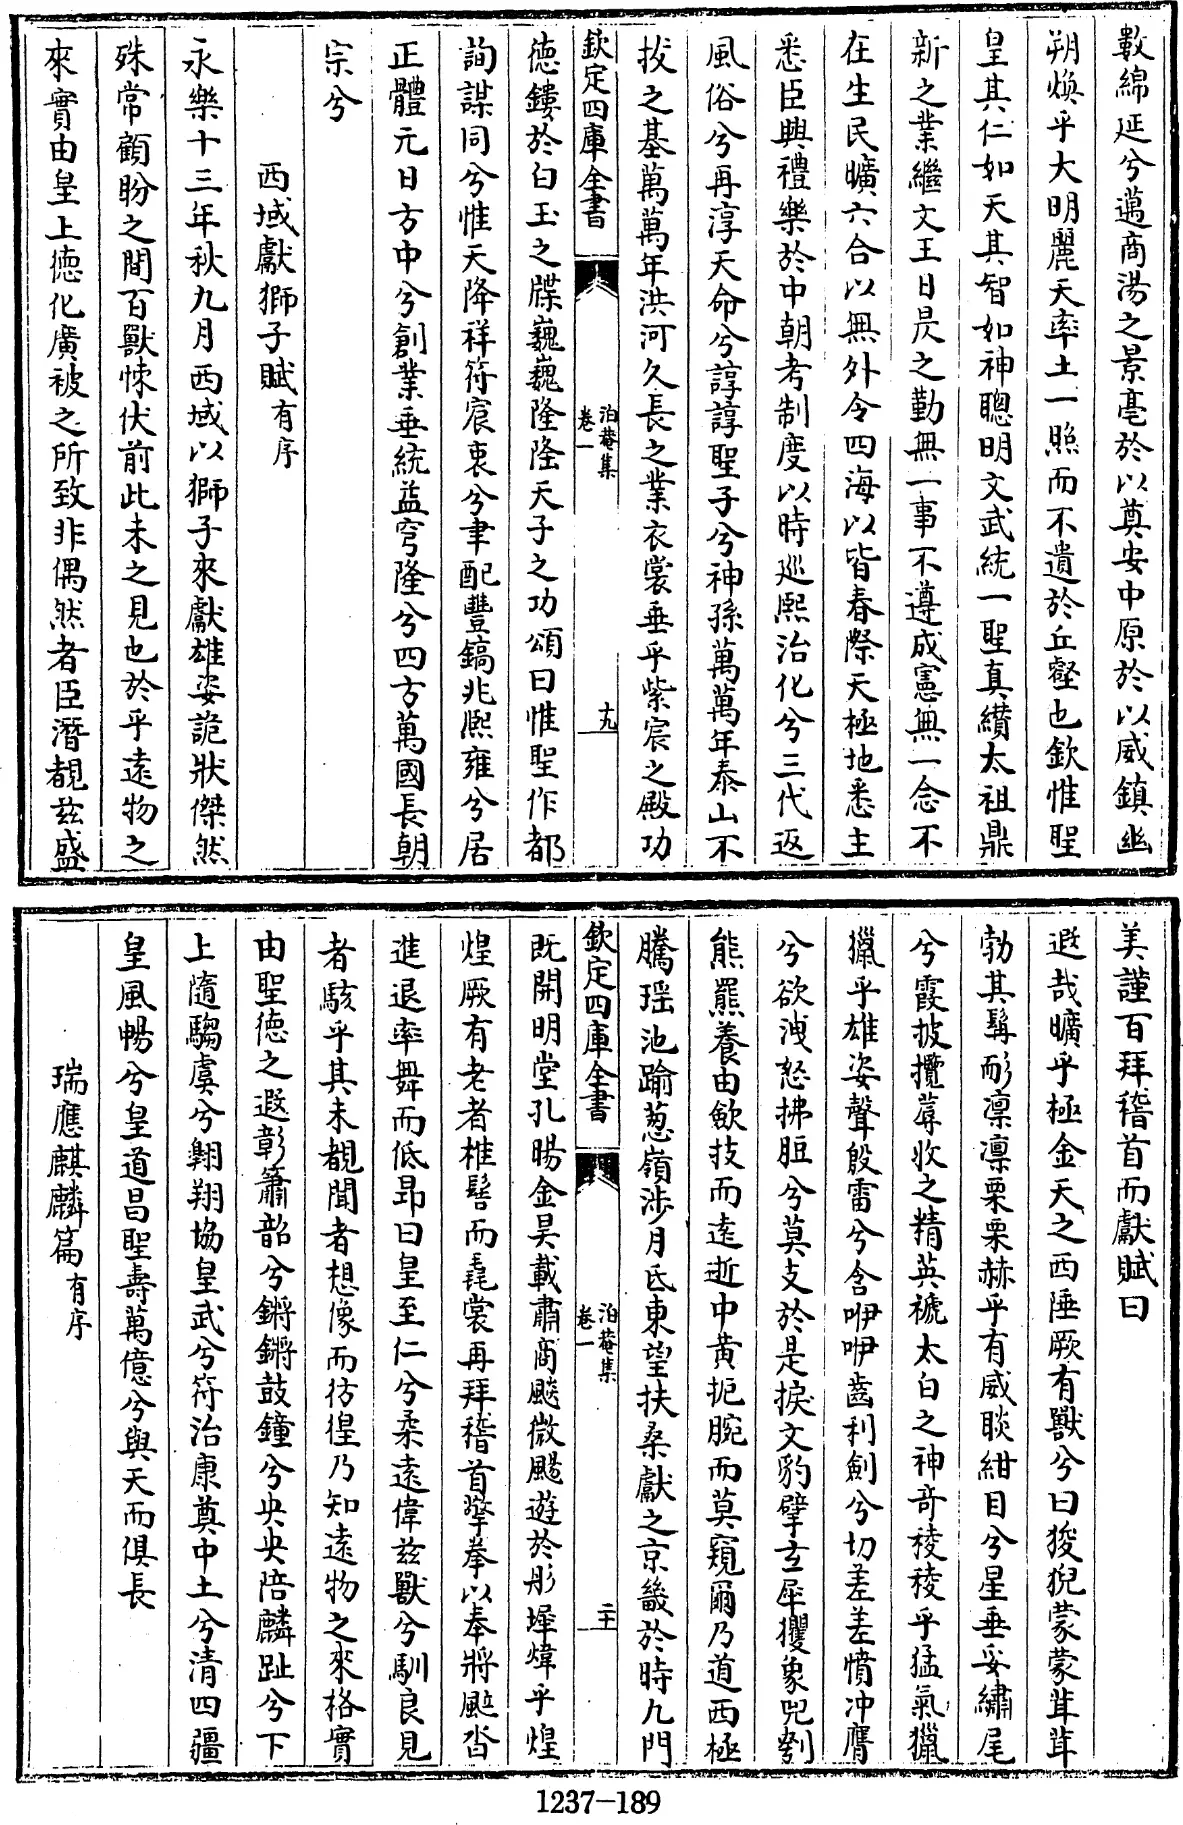 數綿延兮邁商湯之景亳於以奠安中原於以威鎮幽
朔煥乎大明麗天率土一照而不遺於丘壑也欽惟聖
皇其仁如天其智如神聰明文武統一聖真纘太祖鼎
新之業繼文王日昃之勤無一事不遵成憲無一念不
在生民曠六合以無外令四海以皆春際天極地悉主
悉臣興禮樂於中朝考制度以時廵熙治化兮三代返
風俗兮再淳天命兮諄諄聖子兮神孫萬萬年泰山不
拔之基萬萬年洪河久長之業衣裳垂乎紫宸之殿功
欽定四庫全書
泊菴集
卷一
十九
德鏤於白玉之牒巍巍隆隆天子之功頌曰惟聖作都
詢謀同兮惟天降祥符宸衷兮聿配豐鎬兆熙雍兮居
正體元日方中兮創業垂統益穹隆兮四方萬國長朝
宗兮
西域獻獅子賦有序
永樂十三年秋九月西域以獅子來獻雄姿詭狀傑然
殊常顧盼之間百獸悚伏前此未之見也於乎遠物之
來實由皇上德化廣被之所致非偶然者臣潛覩兹盛
美謹百拜稽首而獻賦曰
遐哉曠乎極金天之西陲厥有獸兮曰狻猊蒙蒙茸茸
勃其髯耏凛凛栗栗赫乎有威睒紺目兮星垂妥繡尾
兮霞披攬蓐收之精英褫太白之神竒稜稜乎猛氣獵
獵乎雄姿聲殷雷兮含咿咿齒利劍兮切差差憤冲膺
兮欲洩怒拂胆兮莫支於是捩文豹擘玄犀攫象兕劉
熊羆養由歛技而遠逝中黄扼腕而莫窺爾乃道西極
騰瑶池踰葱嶺涉月氐東望扶桑獻之京畿於時九門
欽定四庫全書
泊菴集
卷一
二十
既開明堂孔暘金昊載肅商飈微颺遊於彤墀煒乎煌
煌厥有老者椎髻而毳裳再拜稽首擎拳以奉將颭沓
進退率舞而低昂曰皇至仁兮柔遠偉兹獸兮馴良見
者駭乎其未覩聞者想像而彷徨乃知遠物之來格實
由聖德之遐彰簫韶兮鏘鏘鼓鐘兮央央陪麟趾兮下
上隨騶虞兮翺翔協皇武兮符治康奠中土兮清四疆
皇風暢兮皇道昌聖壽萬億兮與天而俱長
瑞應麒麟篇有序
1237-189